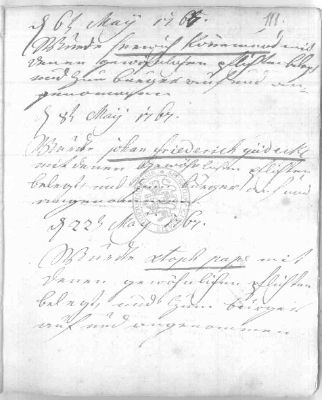 d 6t Maÿ 1767. 111.
Wurde Henrich Könemand mit
denen gewöhnlichen pflichten beleg
und zum bürger auf und an
genommen
d 8t Maÿ 1767.
Wurde johan friederich gödecke
mit denen gewöhnlichen pflichten
belegt und zum bürger auf und
angenommen
d 22t Maÿ 1767.
Wurde stoph pape mit
denen gewöhnlichen pflichten
belegt und zum bürger
auf und angenommen